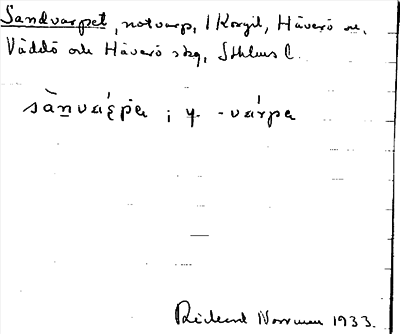 Sandvarpet, notvarp, i Korgil, Häverö sn,
Väddö och Häverö skg, Sthlms l.
sànvárpa ; y. -várpa
Rickard Norrman 1933.